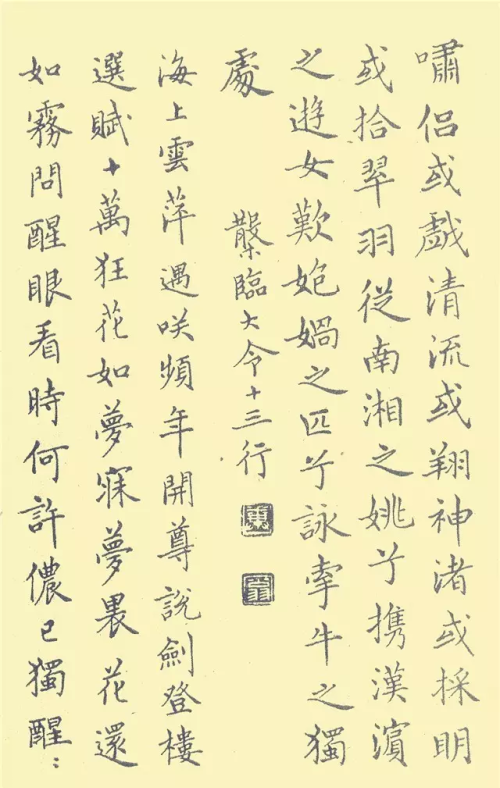 嘯侶或戲清流或翔神渚或採明
或拾翠羽從南湘之姚兮携漢濱
之遊女歎媧之匹兮詠牽牛之獨
處
臨大令十三行
海上雲萍遇咲頻年開尊說劍登樓
選賦十萬狂花如夢寐夢裏花還
如霧問醒眼看時何許儂已獨醒：